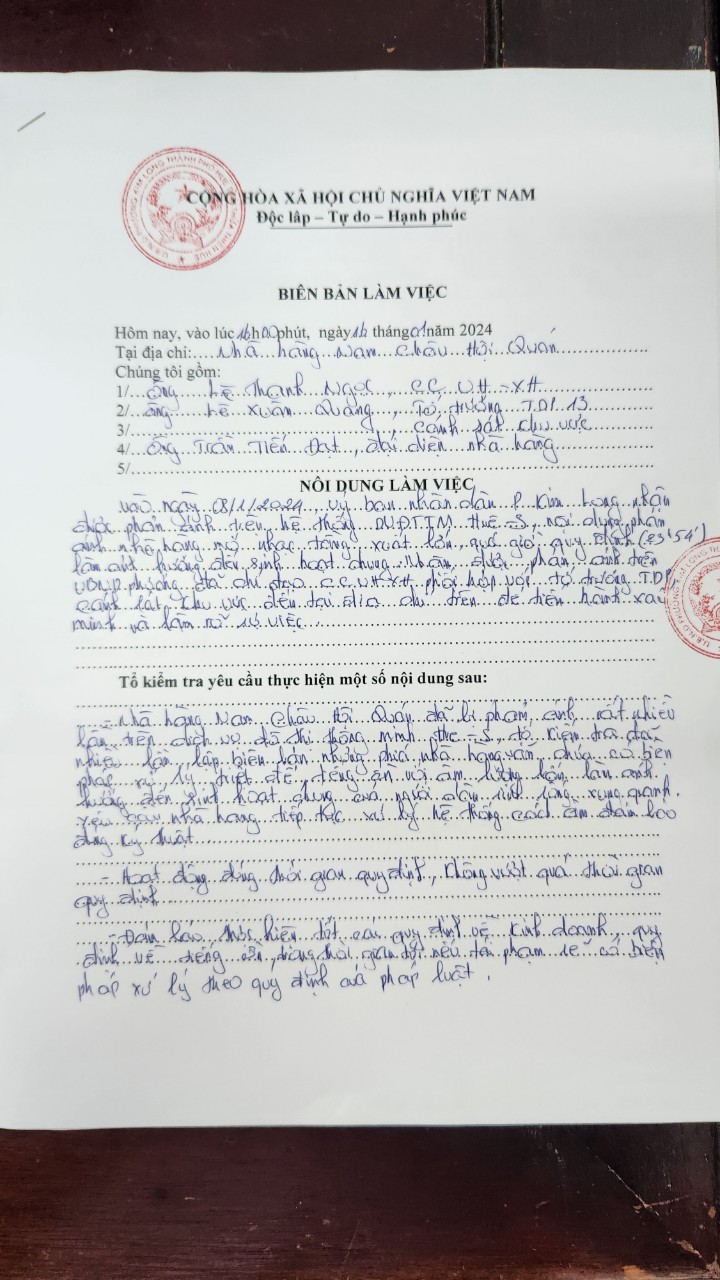 CỘNG HÒA XÃ HỘI CHỦ NGHĨA VIỆT NAM
Độc lập – Tự do – Hạnh phúc
BIÊN BẢN LÀM VIỆC
Hôm nay, vào lúc 16h00 phút, ngày 16 tháng 01 năm 2024
Tại địa chỉ: Nhà hàng Nam Châu Hội Quán
Chúng tôi gồm:
1/ Ông Lê Thanh Ngọc, CC VH-XH
2/ ông Lê Xuân Quang, Tổ trưởng TDP 13
3/ , Cảnh sát khu vực
4/ Ông Trần Tiến Đạt, đại diện nhà hàng
5/
NỘI DUNG LÀM VIỆC
Vào ngày 08/1/2024, Uỷ ban nhân dân P. Kim Long nhận
được phản ánh trên hệ thống DVĐTTM Huế-S, nội dung phản
ánh nhà hàng mở nhạc, tông xuất lớn, quá giờ quy định (23h54')
làm ảnh hưởng đến sinh hoạt chung. Nhận được phản ánh trên
UBND phường đã chỉ đạo CC VHXH phối hợp với tổ trưởng TDP,
cảnh sát khu vực đến tại địa chỉ trên để tiến hành xác
minh và làm rõ sự việc.
Tổ kiểm tra yêu cầu thực hiện một số nội dung sau:
- Nhà hàng Nam Châu Hội Quán đã bị phản ánh rất nhiều
lần trên dịch vụ đô thị thông minh Hue-S, tổ kiểm tra đã
nhiều lần lập biên bản nhưng phía nhà hàng vẫn chưa có biện
pháp xử lý triệt để, tiếng ồn với âm lượng lớn làm ảnh
hưởng đến sinh hoạt chung của người dân sinh sống xung quanh.
Yêu cầu nhà hàng tiếp tục xử lý hệ thống cách âm đảm bảo
đúng kỹ thuật.
- Hoạt động đúng thời gian quy định, không vượt quá thời gian
quy định
- Đảm bảo, thực hiện tốt các quy định về kinh doanh, quy
định về tiếng ồn, trong thời gian tới nếu tái phạm sẽ có biện
pháp xử lý theo quy định của pháp luật.